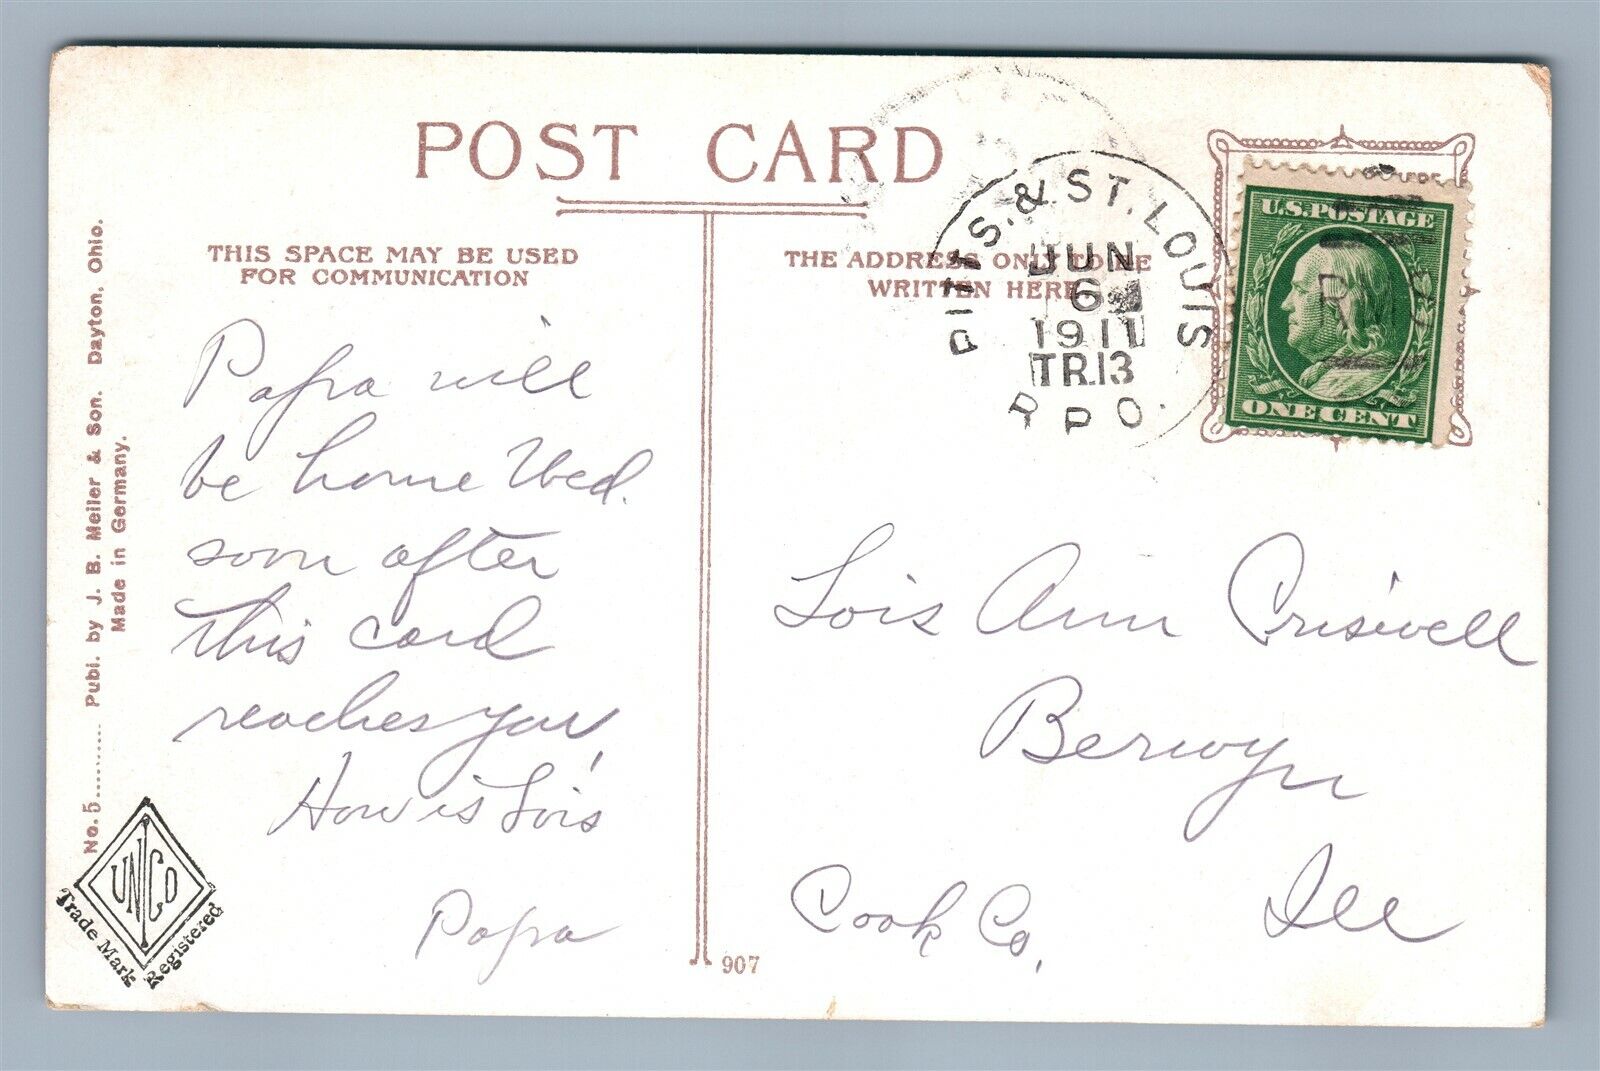 POST CARD
THIS SPACE MAY BE USED
FOR COMMUNICATION
THE ADDRESS ONLY TO BE
WRITTEN HERE
PITTS. & ST. LOUIS
JUN
6
1911
TR.13
R.P.O.
U.S. POSTAGE
ONE CENT
Papa will
be home Wed.
soon after
this card
reaches you,
How is Lois
Papa
Lois Ann Criswell
Berwyn
Cook Co, Ill
No. 5......... Publ. by J. B. Meiler & Son. Dayton. Ohio.
Made in Germany.
UNCO
Trade Mark Registered
907